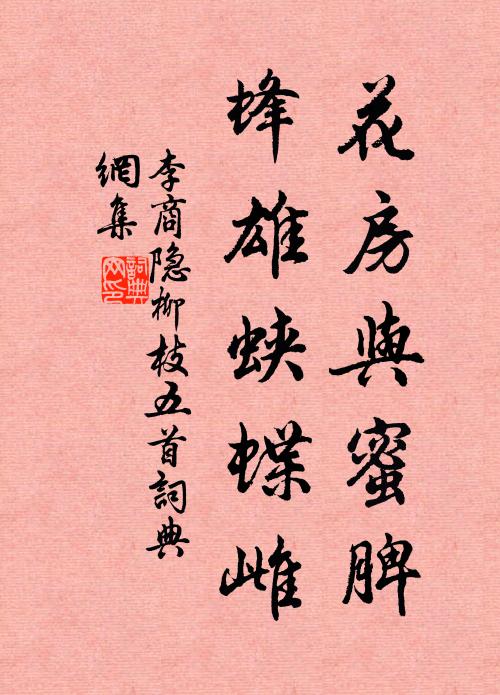 花房與蜜脾
蜂雄蛺蝶雌
李商隐柳枝五首詞典
網集
詞典
網印